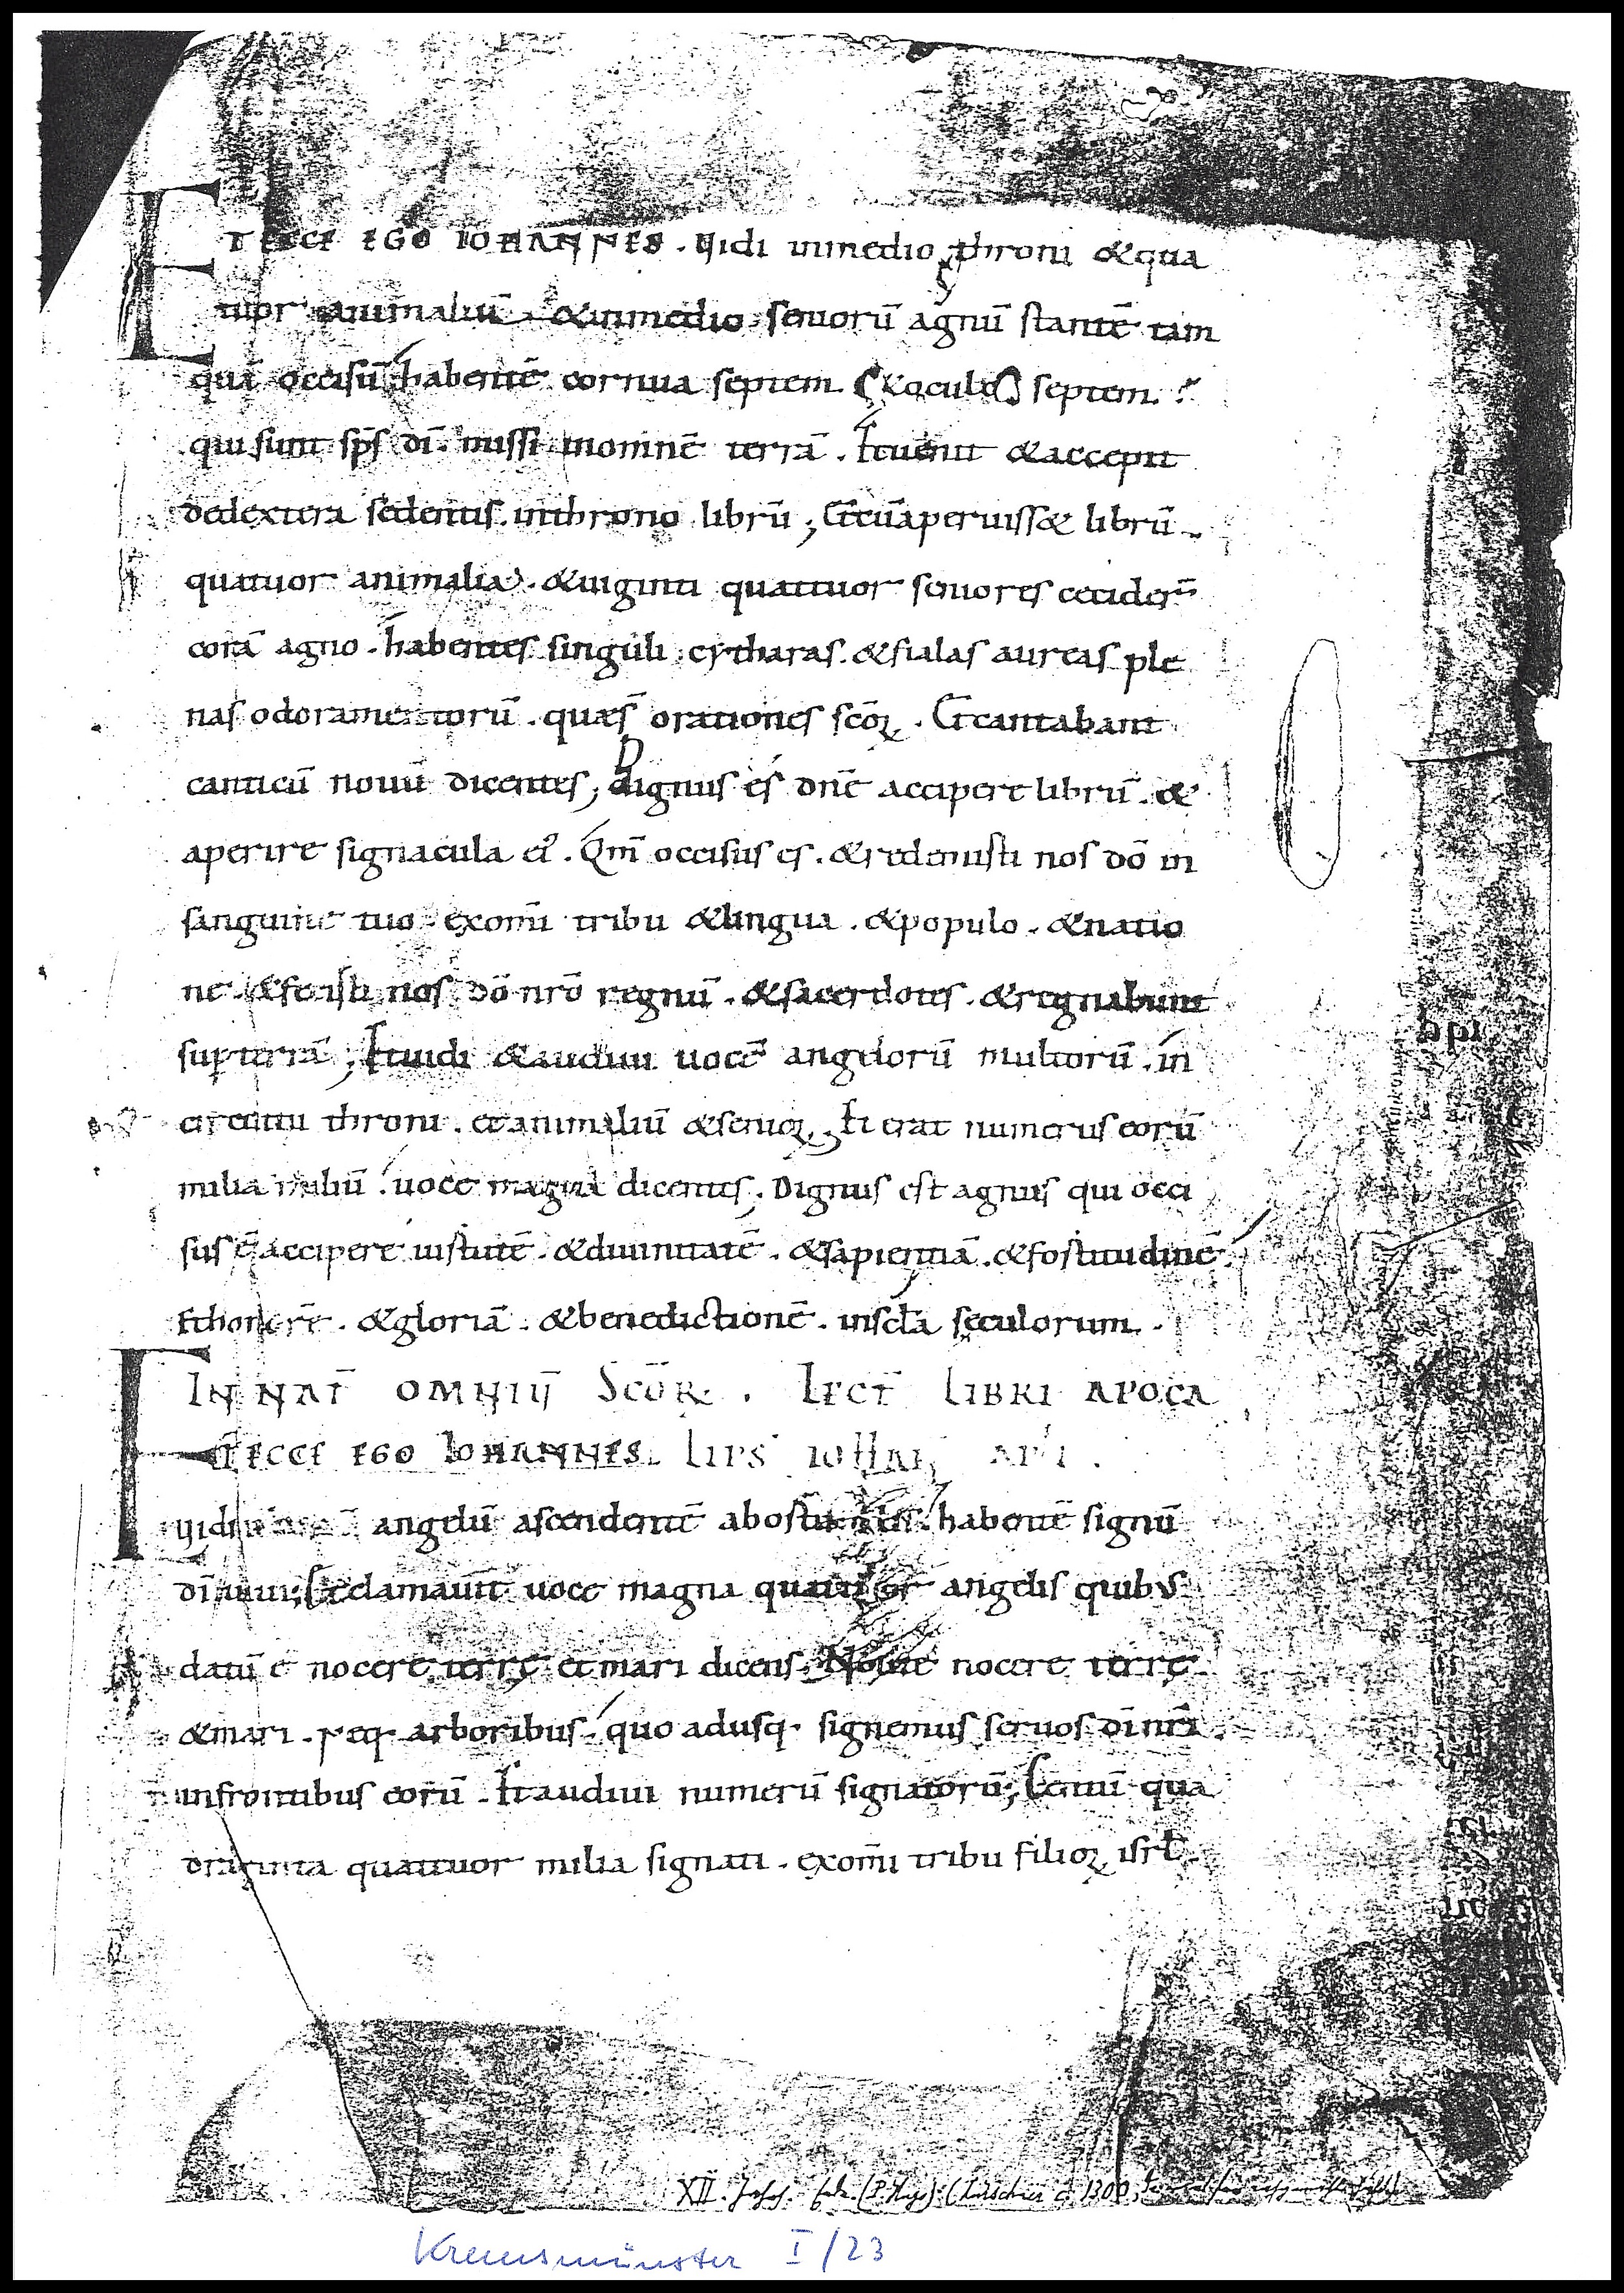 ET ECCE EGO IOHANNES . Vidi inmedio throni & qua
tuor animaliū &inmedio seniorū agnū stantē tam
quā occisū habentē cornua septem . &oculos septem .
qui sunt sp̄s dī . missi inomnē terrā . Et uenit &accepit
dedextera sedentis inthrono librū ; Et cū aperuiss& librū
quatuor animalia . &uiginti quattuor seniores ceciderū
corā agno . habentes singuli cytharas . &fialas aureas ple
nas odoramentorū . quæ s̄ orationes scōꝝ . Et cantabant
canticū nouū dicentes ; Dignus es dn̄e accipere librū . &
aperire signacula ei᾽ . Qm̄ occisus es . &redemisti nos dō in
sanguine tuo exom̄i tribu &lingua . &populo . &natio
ne . &fecisti nos dō nr̄o regnū . &sacerdotes . &regnabunt
sup terrā ; Et uidi &audiui uocē angelorū multorū . in
circuitu throni . et animaliū &senioꝝ . Et erat numerus eorū
milia miliū . uoce magna dicentes ; Dignus est agnus qui occi
sus ē accipere uirtutē . &diuinitatē . &sapientiā . &fortitudinē .
Et honorē . &gloriā . &benedictionē . insclā seculorum .
IN NAT̄ OMNIŪ SCŌR . LECT̄ LIBRI APOCA
ET ECCE EGO IOHANNES LIPS IOHAN APLI .
Vidi angelū ascendentē abortu solis . habentē signū
dī uiui ; Et clamauit uoce magna quattuor angelis quibus
datū ē nocere terrę et mari dicens . Nolite nocere terrę
&mari . neq; arboribus . quo adusq; signemus seruos dī nr̄i
infrontibus eorū . Et audiui numerū signatorū ; Centū qua
draginta quattuor milia signati . exom̄i tribu filioꝝ isrl̄ .
XII. Jahrh.
Kremsmünster I/23